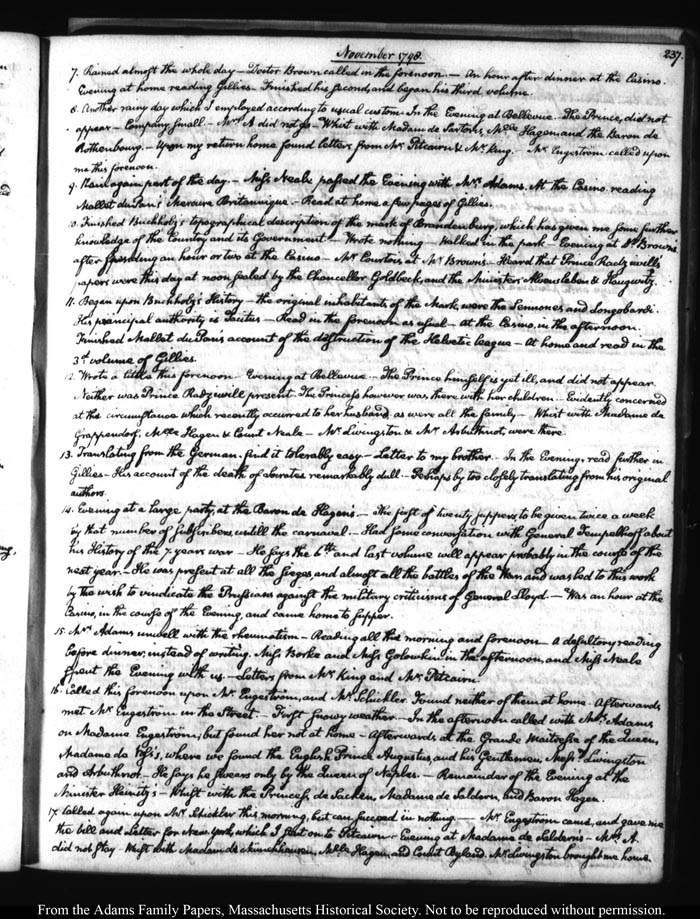 November 1798.
237.
7. Rained almost the whole day — Doctor Brown called in the forenoon. — An hour after dinner at the Casino.
Evening at home reading Gillies. Finished his second, and began his third volume.
8. Another rainy day which I employed according to usual custom. In the Evening at Bellevue. The Prince, did not
appear — Company small — Mrs. A did not go — Whist with Madam de Sartoris, Melle. Hagen and the Baron de
Rothenbourg. — Upon my return home found letters from Mr. Pitcairn & Mr. King. — Mr. Engeström called upon
me this forenoon.
9. Rain again part of the day. — Miss Neale passed the Evening with Mrs. Adams. At the Casino reading
Mallet du Pan's Mercure Britannique — Read at home a few pages of Gillies.
10. Finished Buchholz's topographical description of the mark of Brandenburg, which has given me some further
knowledge of the Country and its Government — Wrote nothing — Walked in the park — Evening at Dr. Brown's
after spending an hour or two at the Casino — Mr. at Mr. Brown's — Heard that Prince Radziwill's
papers were this day at noon sealed by the Chancellor Goldbeck, and the Ministers Alvensleben & Haugwitz.
11. Began upon Buchholz's History — the original inhabitants of the Mark, were the Semnones and Longobardi.
His principal authority is Tacitus — Read in the forenoon as usual — at the Casino, in the afternoon.
Finished Mallet du Pan's account of the destruction of the Helvetic league — At home and read in the
3d. volume of Gillies.
12. Wrote a little this forenoon. Evening at Bellevue — The Prince himself is yet ill, and did not appear
Neither was Prince Radziwill present. The Princess however was there with her children — Evidently concerned
at the circumstance which recently occurred to her husband, as were all the family — Whist with Madame de
Grappendorf, Melle Hagen & Count Neale — Mr. Livingston & Mr. Arbuthnot, were there.
13. Translating from the German — find it tolerably easy — Letter to my brother. — In the Evening, read further in
Gillies — His account of the death of Socrates remarkably dull — Perhaps by too closely translating from his original
authors.
14. Evening at a large party, at the Baron de Hagen's — The first of twenty suppers, to be given twice a week
by that number of subscribers, untill the carnaval. — Had some conversation with General Tempelhoff about
his History of the 7. years war — He says the 6th. and last volume will appear probably in the course of the
next year. — He was present at all the sieges, and almost all the battles of the War and was led to this work
by the wish to vindicate the Prussians against the military criticisms of General Lloyd. — Was an hour at the
Casino, in the course of the Evening, and came home to supper.
15. Mrs. Adams unwell with the rheumatism — Reading all this morning and forenoon — A desultory reading
before dinner, instead of writing. Miss Bork and Miss Golowkin in the afternoon, and Miss Neale
spent the Evening with us — Letters from Mr. King and Mr. Pitcairn.
16. Called this forenoon upon Mr. Engeström, and Mr. Schickler. Found neither of them at home — Afterwards
met Mr. Engeström in the Street — First Snowy weather — In the afternoon called with Mrs. Adams,
on Madame Engeström, but found her not at home — Afterwards at the Grande Maitresse of the Queen,
Madame de Voss's, where we found the English Prince Augustus, and his Gentlemen, Messrs. Livingston
and Arbuthnot. — He says he swears only by the Queen of Naples. — Remainder of the Evening at the
Minister Heinitz's — Whist with the Princess de Sacken, Madame de Saldern, and Baron Hagen.
17. Called again upon Mr. Schickler this morning, but can succeed in nothing. — Mr. Engeström came, and gave me
the bill and Letter for New York, which I sent on to Pitcairn — Evening at Madame de Saldern's — Mrs. A.
did not stay — Whist with Madam de Munchhausen, Melle Hagen, and Count Byland. Mr. Livingston brought me home.
From the Adams Family Papers, Massachusetts Historical Society. Not to be reproduced without permission.